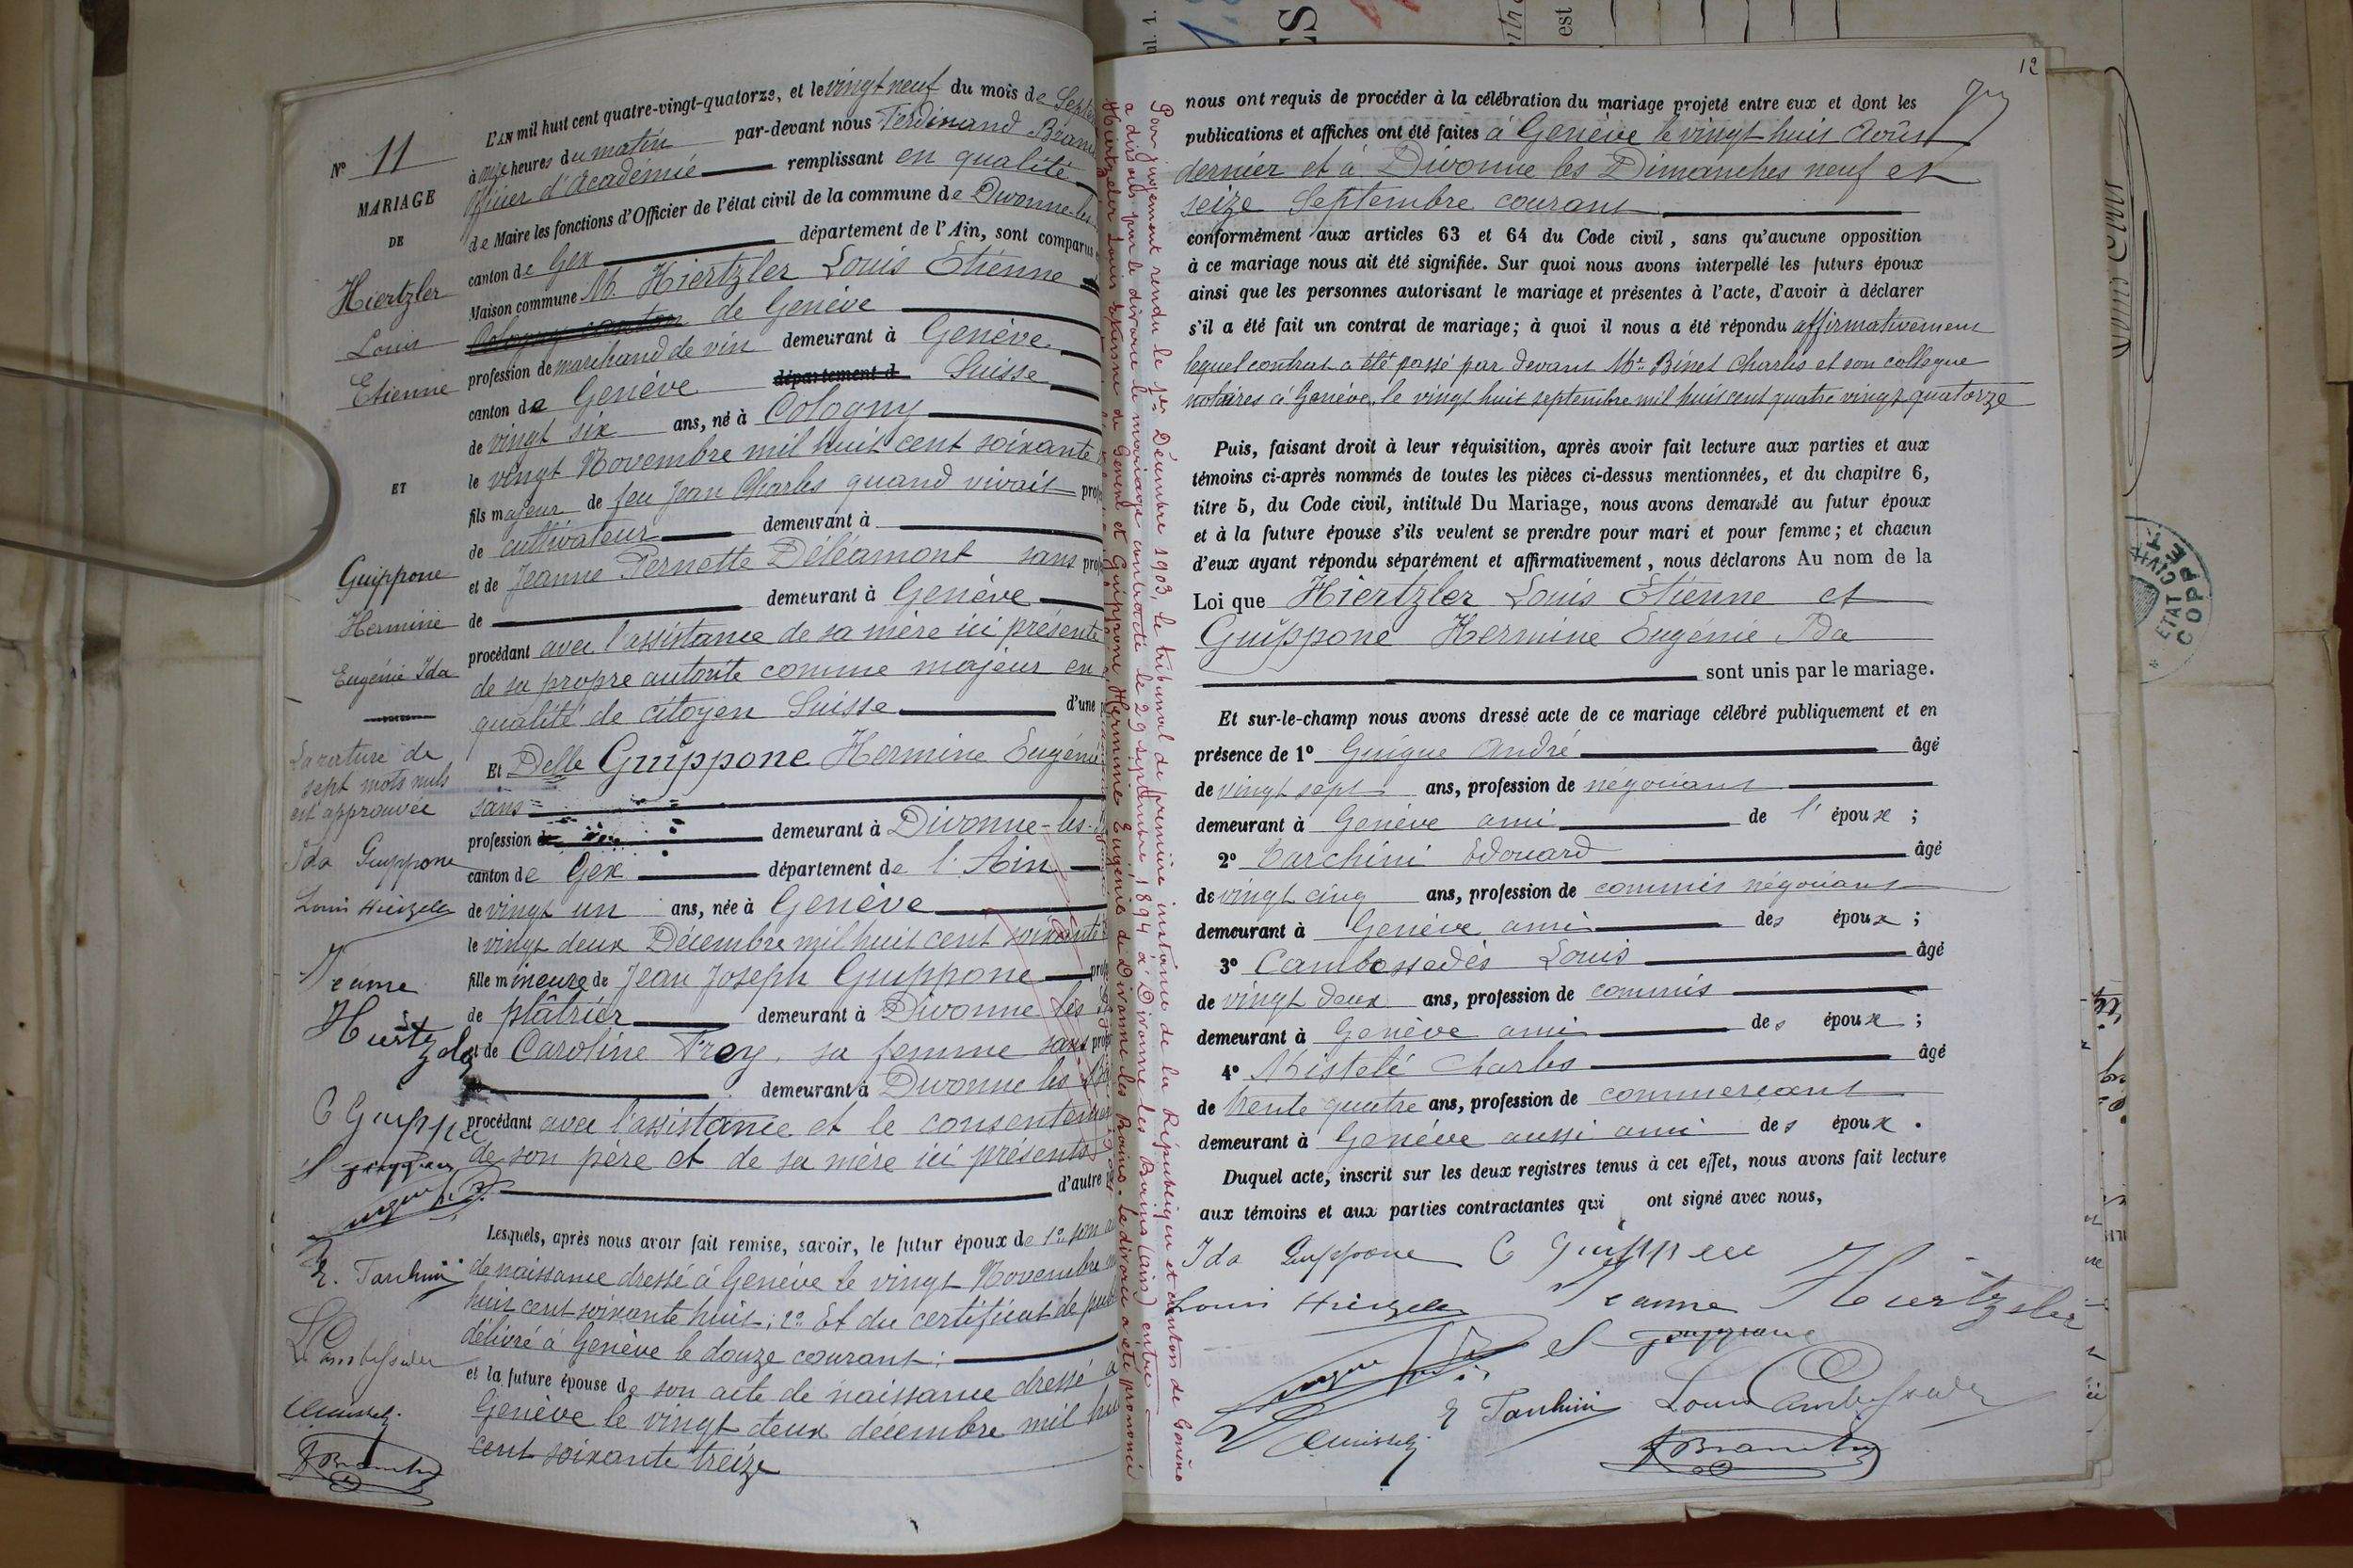 Nº 11
MARIAGE
DE
Hiertzler
Louis
Etienne
ET
Guippone
Hermine
Eugénie Ida
La rature de
sept mots nuls
est approuvée
Ida Guippone
Louis Hiertzeler
Jeanne
Hiertzeler
C Guippone
E. Tarchini
L Cambessedes
L'AN mil huit cent quatre-vingt-quatorze, et le vingt neuf du mois de
à onze heures du matin par-devant nous Ferdinand
officier d'Académie remplissant en qualité
de Maire les fonctions d'Officier de l'état civil de la commune de Divonne-les
canton de Gex département de l'Ain, sont comparus
Maison commune M. Hiertzler Louis Etienne
Cologny canton de Genève
profession de marchand de vin demeurant à Genève
canton de Genève département d Suisse
de vingt six ans, né à Cologny
le vingt Novembre mil huit cent soixante
fils majeur de feu Jean Charles quand vivait
de cultivateur demeurant à
et de Jeanne Pernette Déléamont sans
de demeurant à Genève
procédant avec l'assistance de sa mère ici présente
de sa propre autorité comme majeur en
qualité de citoyen Suisse d'une
Et Delle Guippone Hermine Eugénie
sans
profession de demeurant à Divonne-les-
canton de Gex département de l'Ain
de vingt un ans, née à Genève
le vingt deux Décembre mil huit cent soixante
fille mineure de Jean Joseph Guippone
de plâtrier demeurant à Divonne les
et de Caroline Trey sa femme sans
demeurant à Divonne les
procédant avec l'assistance et le consentement
de son père et de sa mère ici présents
d'autre
Lesquels, après nous avoir fait remise, savoir, le futur époux de 1º son
de naissance dressé à Genève le vingt Novembre
huit cent soixante huit; 2º Et du certificat de
délivré à Genève le douze courant;
et la future épouse de son acte de naissance dressé à
Genève le vingt deux décembre mil huit
cent soixante treize
Par jugement rendu le 1er Décembre 1903, le tribunal de première instance de la République et canton de Genève
a dissous par le divorce le mariage contracté le 29 septembre 1894 à Divonne les Bains (Ain) entre
Hiertzeler Louis Etienne de Genève et Guippone Hermine Eugénie de Divonne les Bains. Le divorce a été prononcé
12
nous ont requis de procéder à la célébration du mariage projeté entre eux et dont les
publications et affiches ont été faites à Genève le vingt huit Août
dernier et à Divonne les Dimanches neuf et
seize Septembre courant
conformément aux articles 63 et 64 du Code civil, sans qu'aucune opposition
à ce mariage nous ait été signifiée. Sur quoi nous avons interpellé les futurs époux
ainsi que les personnes autorisant le mariage et présentes à l'acte, d'avoir à déclarer
s'il a été fait un contrat de mariage; à quoi il nous a été répondu affirmativement
lequel contrat a été passé par devant Me Binet Charles et son collègue
notaires à Genève, le vingt huit septembre mil huit cent quatre vingt quatorze
Puis, faisant droit à leur réquisition, après avoir fait lecture aux parties et aux
témoins ci-après nommés de toutes les pièces ci-dessus mentionnées, et du chapitre 6,
titre 5, du Code civil, intitulé Du Mariage, nous avons demandé au futur époux
et à la future épouse s'ils veulent se prendre pour mari et pour femme; et chacun
d'eux ayant répondu séparément et affirmativement, nous déclarons Au nom de la
Loi que Hiertzler Louis Etienne et
Guippone Hermine Eugénie Ida
sont unis par le mariage.
Et sur-le-champ nous avons dressé acte de ce mariage célébré publiquement et en
présence de 1º Guigue André âgé
de vingt sept ans, profession de négociant
demeurant à Genève ami de l'épouse;
2º Tarchini Edouard âgé
de vingt cinq ans, profession de commis négociant
demeurant à Genève ami des époux;
3º Cambessedès Louis âgé
de vingt deux ans, profession de commis
demeurant à Genève ami des époux;
4º Misteli Charles âgé
de trente quatre ans, profession de commerçant
demeurant à Genève aussi ami des époux.
Duquel acte, inscrit sur les deux registres tenus à cet effet, nous avons fait lecture
aux témoins et aux parties contractantes qui ont signé avec nous,
Ida Guippone C Guippone
Louis Hiertzeler Jeanne Hiertzeler
E Tarchini Louis Cambessedes
ETAT CIVIL
COPPET